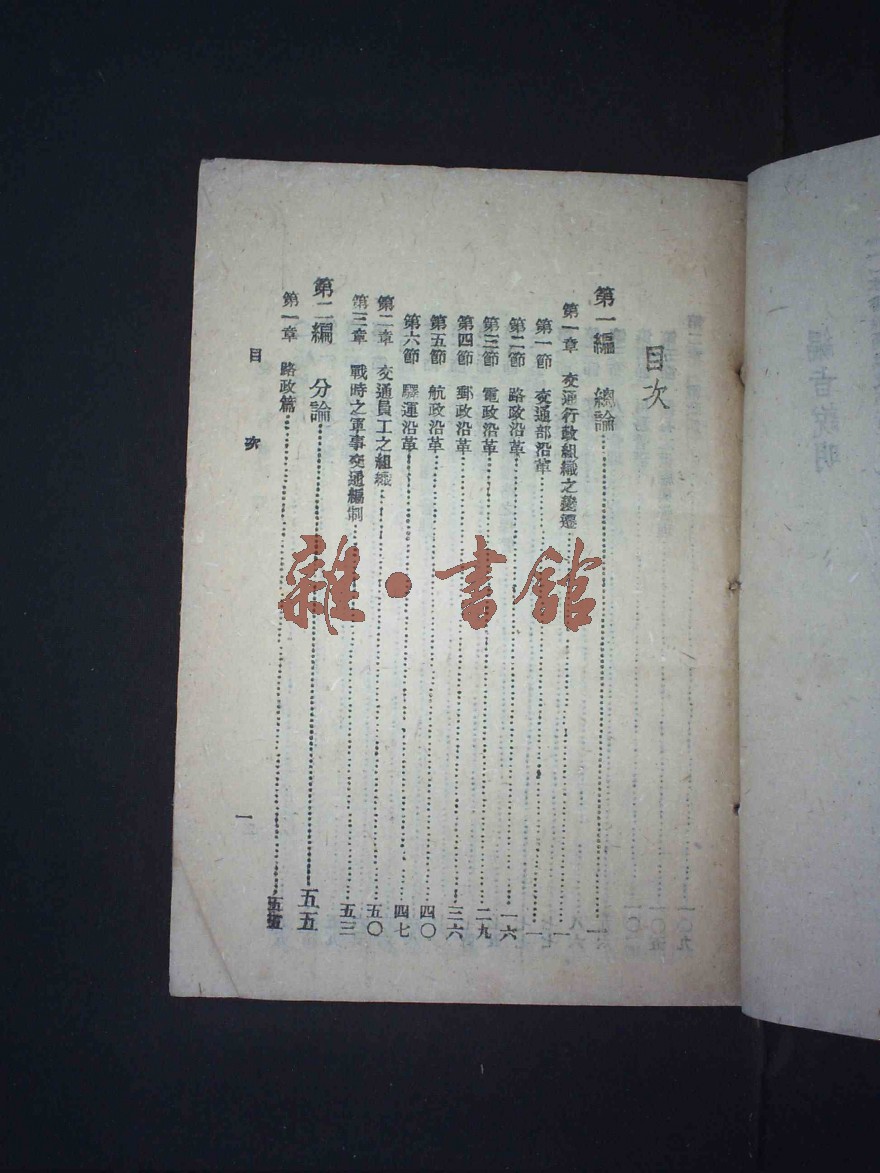 目次
第一編　總論…………一
第一章　交通行政組織之變遷…………一
第一節　交通部沿革…………一
第二節　路政沿革…………一六
第三節　電政沿革…………二九
第四節　郵政沿革…………三六
第五節　航政沿革…………四〇
第六節　驛運沿革…………四七
第二章　交通員工之組織…………五〇
第三章　戰時之軍事交通編制…………五三
第二編　分論…………五五
第一章　路政篇…………五五
目　次
一
雜・書館
編者說明